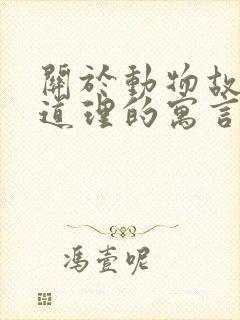 關於動物故
道理的寓言
馮壹呢